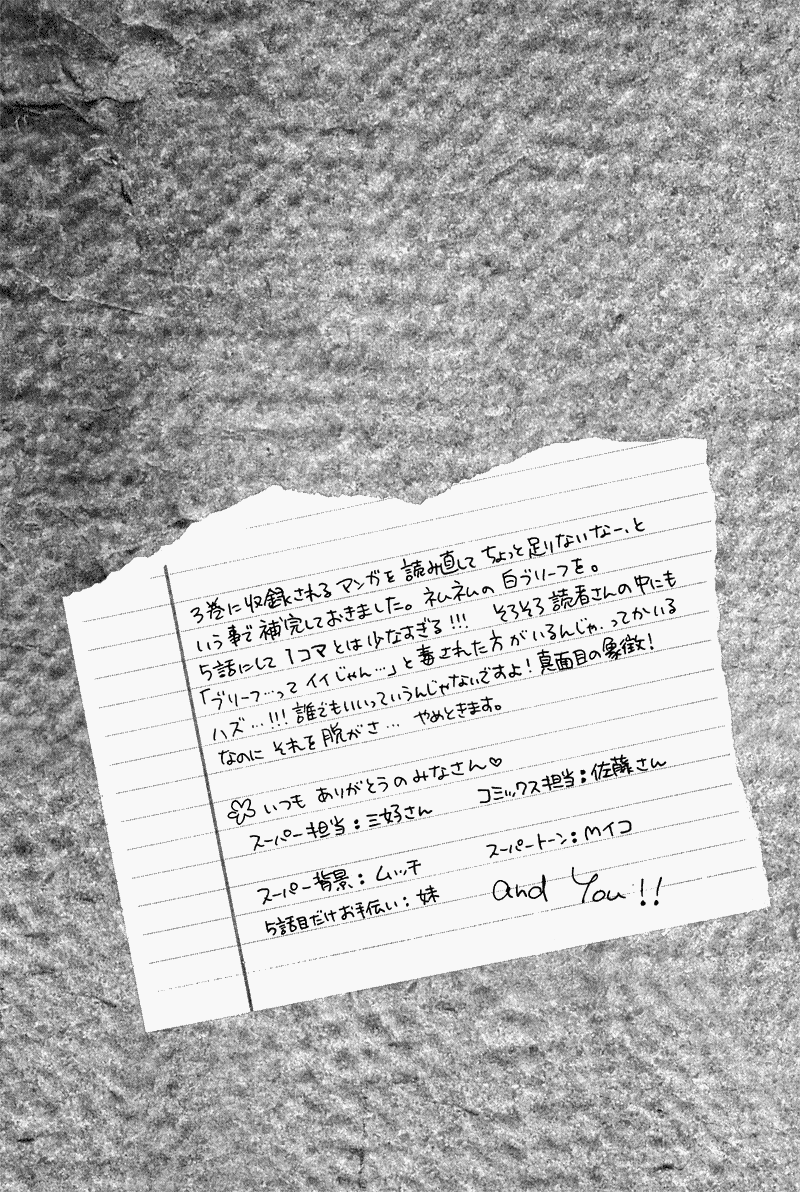 3巻に収録されるマンガを読み直してちょっと足りないなー、と
いう事で補完しておきました。ネムネムの白ブリーフを。
5話にして1コマとは少なすぎる!!! そろそろ読者さんの中にも
「ブリーフ…ってイイじゃん…」と毒された方がいるんじゃ…ってかいる
ハズ…!!! 誰でもいいっていうんじゃないですよ!真面目の象徴!
なのにそれを脱がさ… やめときます。
いつもありがとうのみなさん♡
スーパー担当:三好さん コミックス担当:佐藤さん
スーパー背景:ムッチ スーパートーン:Mイコ
5話目だけお手伝い:妹 and You!!